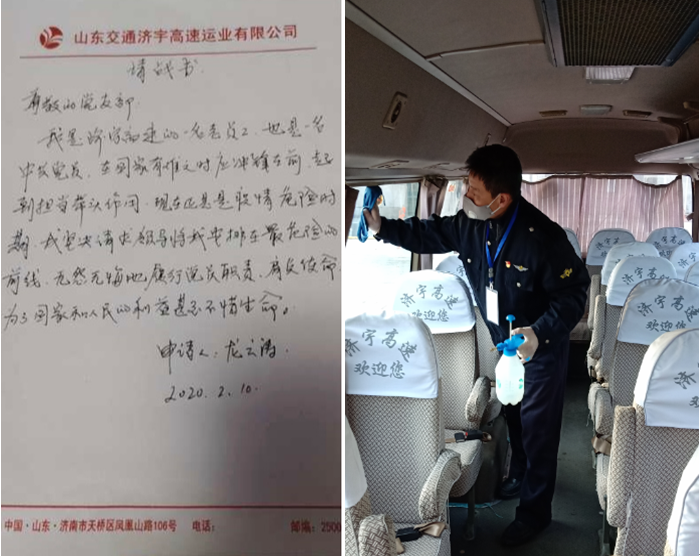 山东交通济宇高速运业有限公司
请战书
尊敬的党支部
我是济宇高速的一名老员工,也是一名
中共党员,在国家有难之时应冲锋在前,起
到担当带头作用,现在正是是疫情危险时
期,我坚决请求领导将我安排在最危险的
前线,无怨无悔地履行党员职责,肩负使命
为了国家和人民的利益甚至不惜生命。
申请人:龙云涛.
2020.2.10.
中国·山东·济南市天桥区凤凰山路106号 电话: 邮编:2500
济宇高速
欢迎您
济宇高速
欢迎您
济宇高速
欢迎您